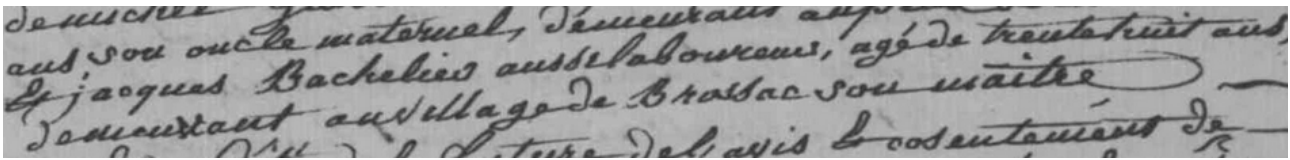 ans son oncle maternel, demeurant
& jacques Bachelier aussi laboureur, agé de trente huit ans,
demeurant au village de Brossac son maitre
lecture de l'avis & cosentement de